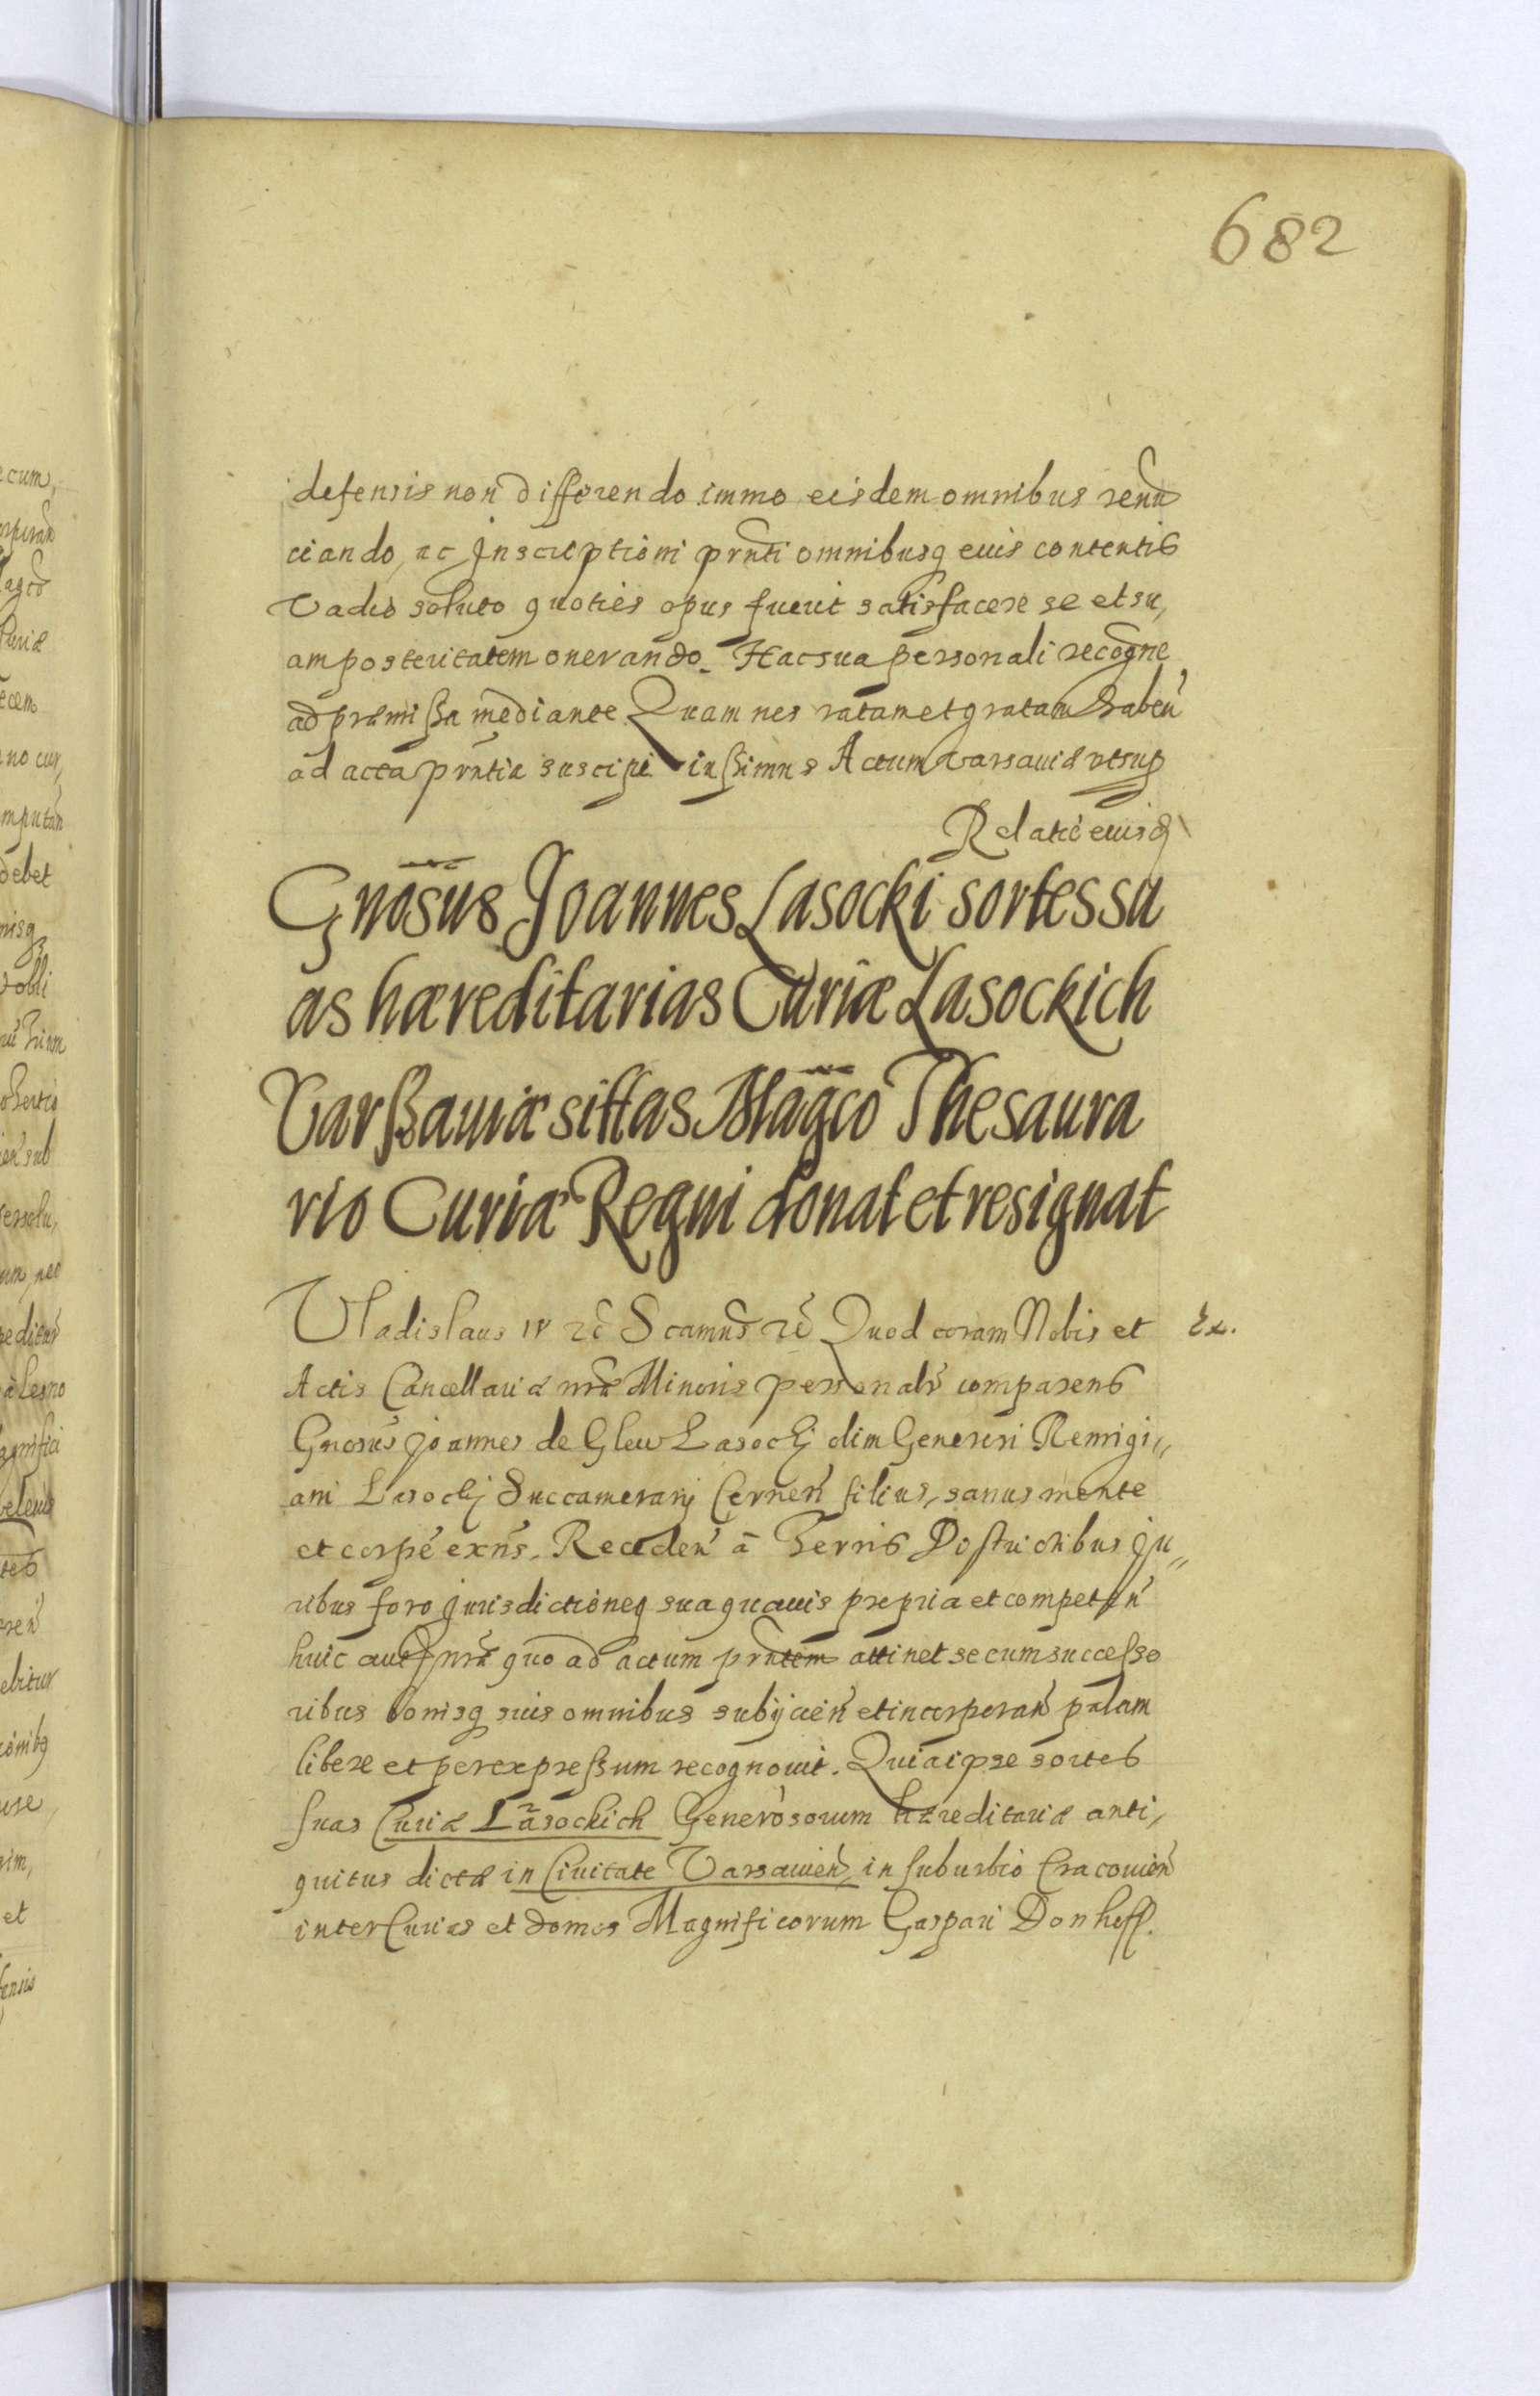 682
defensis non differendo immo eisdem omnibus renũ
ciando, ac Inscriptioni prñti omnibusq eius contentis
Vadio soluto quoties opus fuerit satisfacere se et su,
am posteritatem onerando. Hac sua personali recogne
ad præmissa mediante Quam nos ratam et gratam haben̄
ad acta prñtia suscipi iussimus Actum Varsauiæ utsup
Relatio eiusd
Gnōsus Joannes Lasocki sortes su
as hæreditarias Curiæ Lasockich
Varssauiæ sittas Magco Thesaura
rio Curiæ Regni donat et resignat
Vladislaus IV rč Scamus rč Quod coram Nobis et
Ex.
Actis Cancellariæ nrã Minoris personalr comparens
Gnosus Joannes de Glew Lasocki olim Generosi Remigi,,
ani Lasockj Succamerarij Cernen̄ filius, sanus mente
et corpē exñs. Receden̄ à Terris Districtibus Ju,,
ribus foro Jurisdictioneq sua quauis propria et competen̄
huic autē nrã quo ad actum prñtem attinet se cum successo
ribus bonisq suis omnibus subijcien̄ et incorporan̄ palam
libere et per expressum recognouit. Quia ipse sortes
suas Curiæ Lasockich Generosorum hæreditariæ anti,
quitus dictæ in Ciuitate Varsauien̄, in suburbio Cracouien̄
inter Curias et domos Magnificorum Gaspari Donhoff.